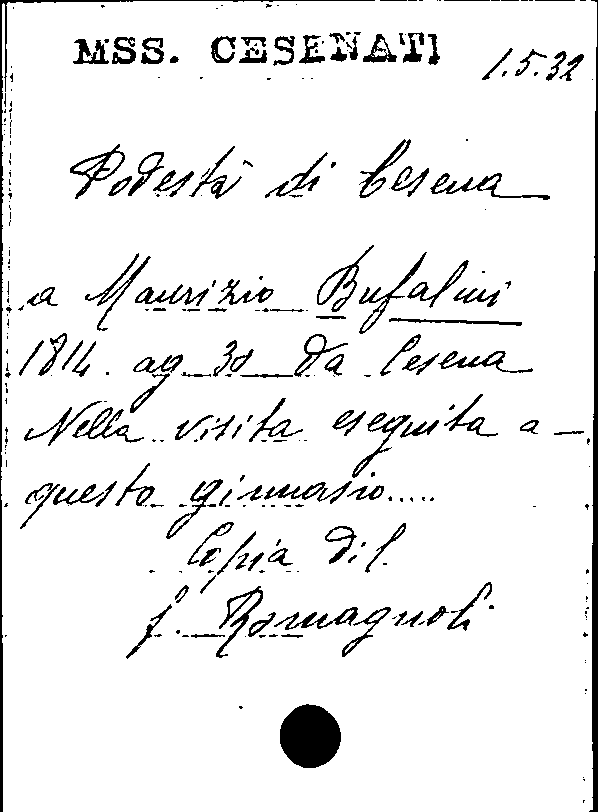 MSS. CESENATI
1.5.32
Podestà di Cesena
a Maurizio Bufalini
1814. ag 30 da Cesena
Nella visita eseguita a
questo ginnasio.....
Copia di
f. Romagnoli